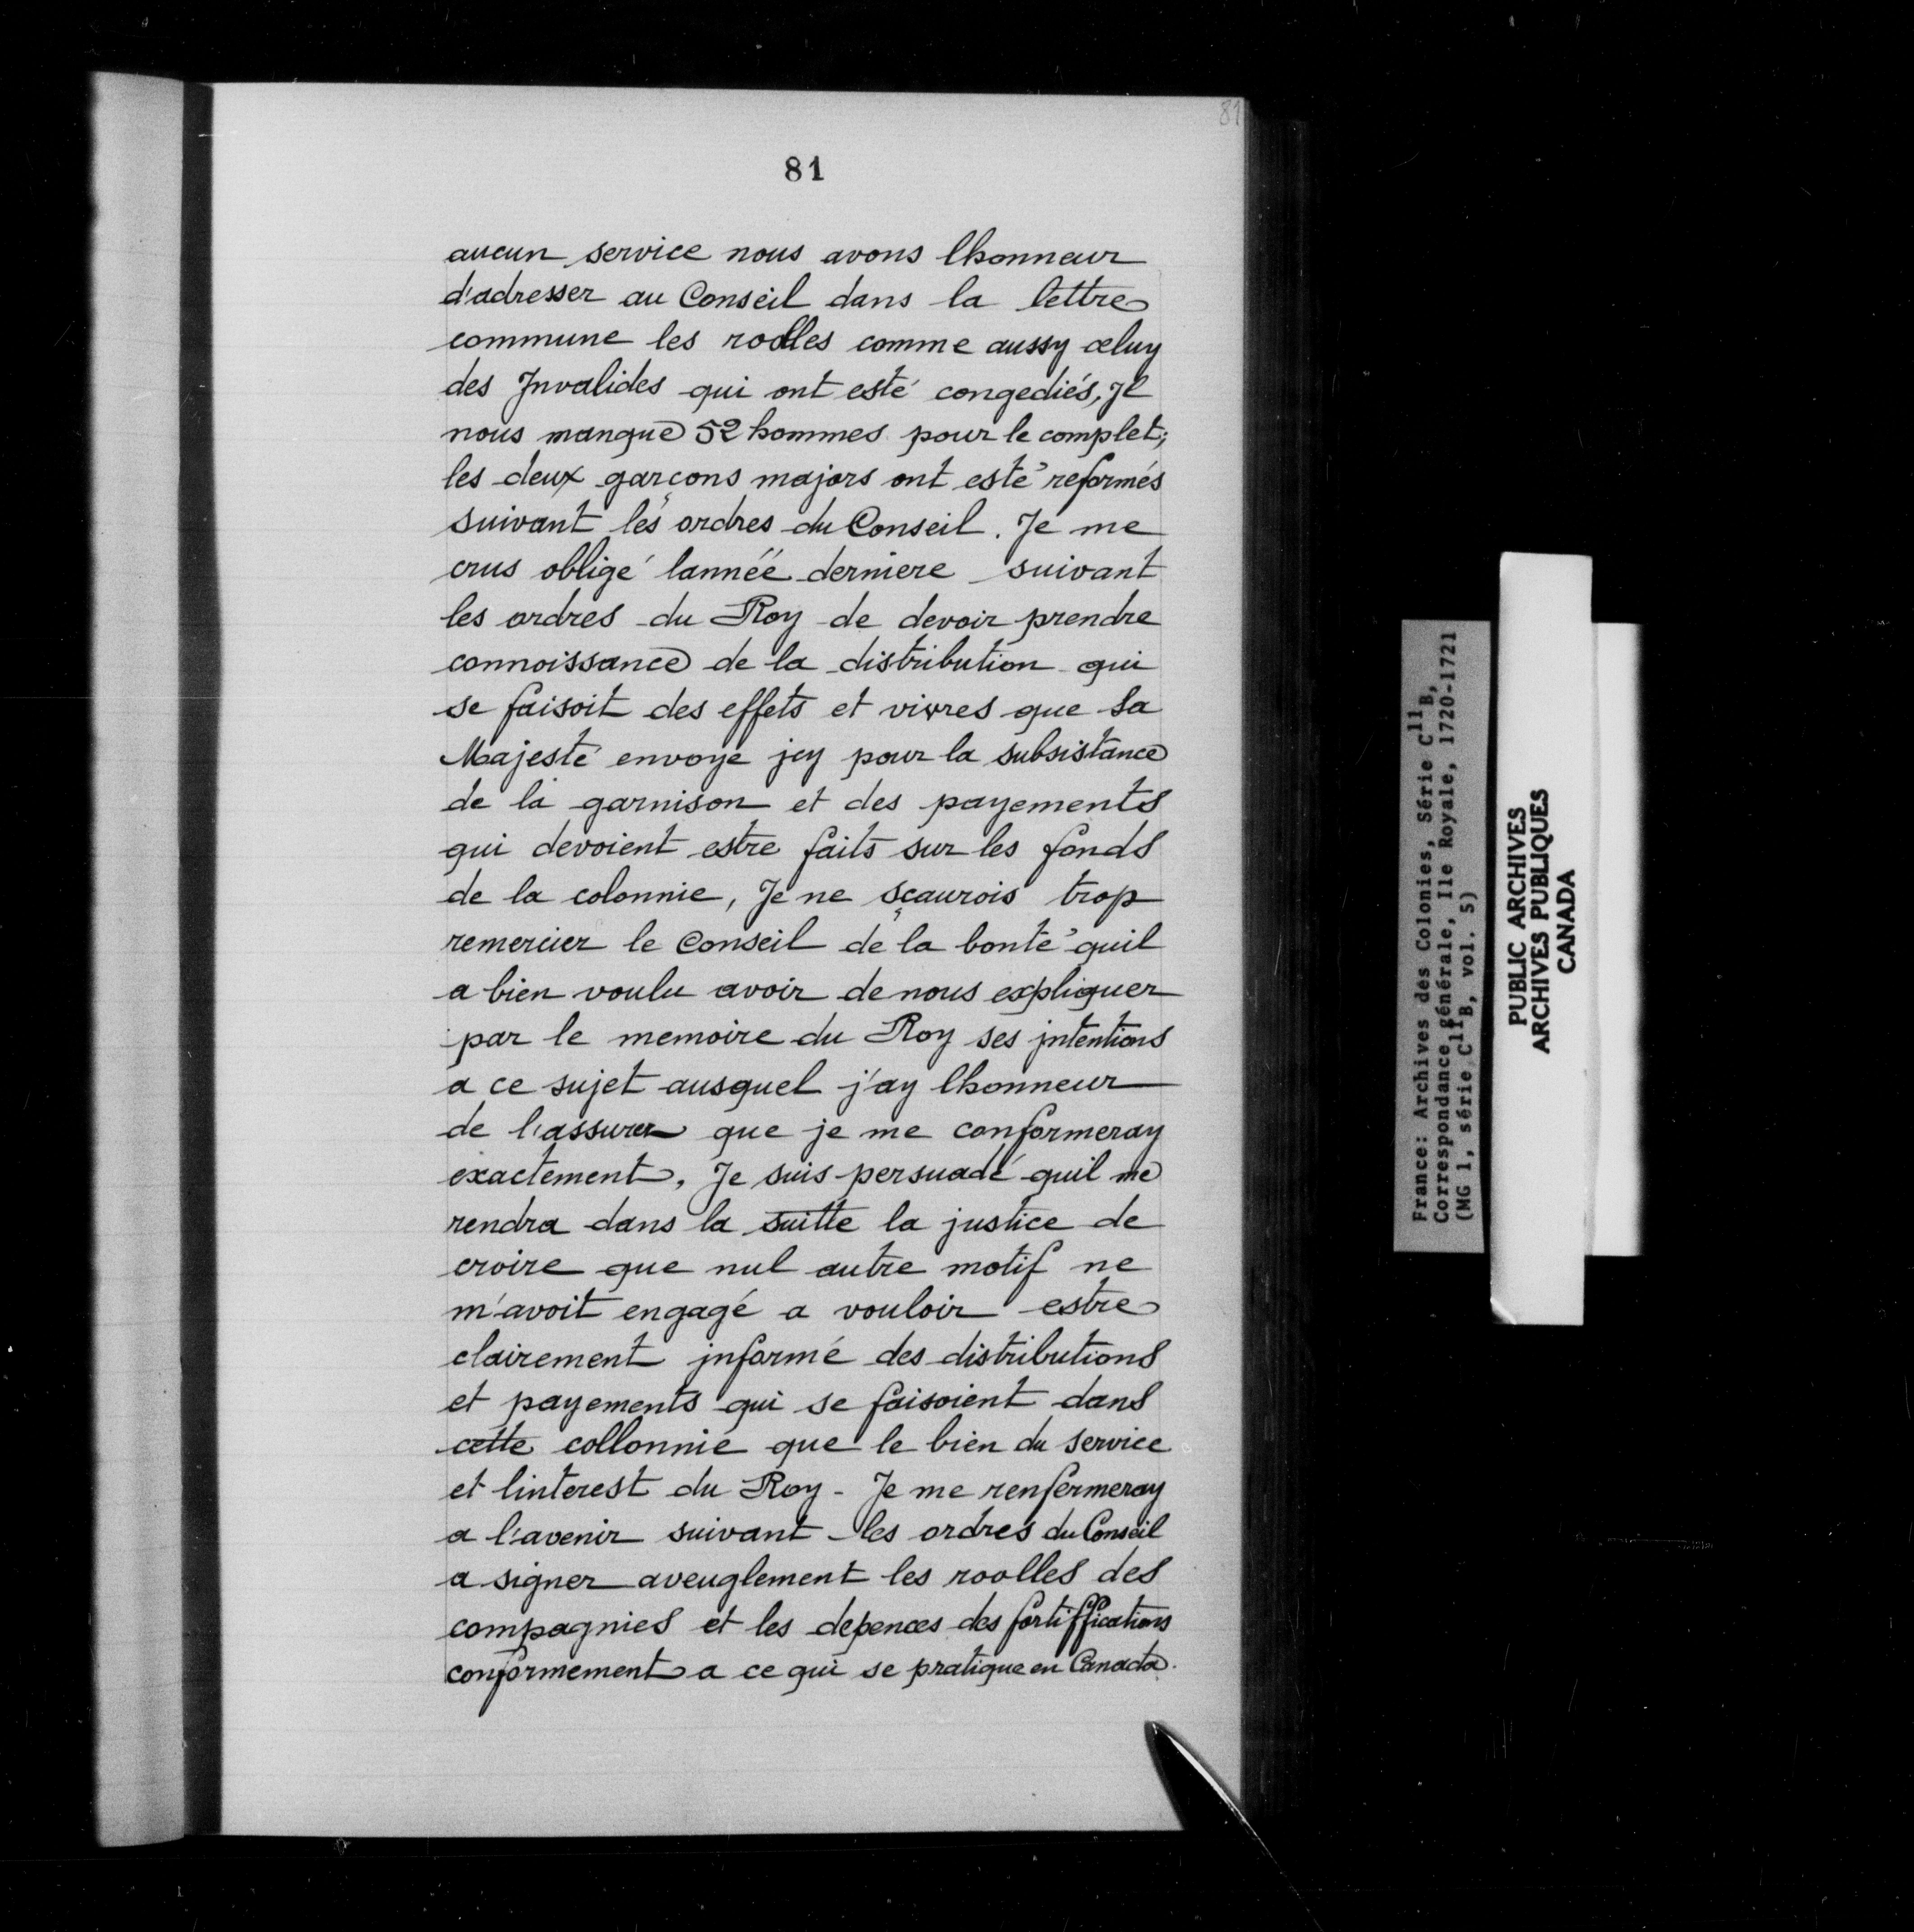 81
81
aucun service nous avons lhonneur
d'adresser au Conseil dans la lettre
commune les roolles comme aussy celuy
des Jnvalides qui ont esté congediés, Jl
nous manque 52 hommes pour le complet;
les deux garçons majors ont esté reformés
suivant les ordres du Conseil. Je me
crus obligé lannéé derniere suivant
les ordres du Roy de devoir prendre
connoissance de la distribution qui
se faisoit des effets et vivres que Sa
Majesté envoye jcy pour la subsistance
de la garnison et des payements
qui devoient estre faits sur les fonds
de la colonnie, Je ne sçaurois trop
remercier le Conseil de la bonté quil
a bien voulu avoir de nous expliquer
par le memoire du Roy ses jntentions
a ce sujet ausquel j'ay lhonneur
de l'assurer que je me conformeray
exactement, Je suis persuadé quil me
rendra dans la suitte la justice de
croire que nul autre motif ne
m'avoit engagé a vouloir estre
clairement jnformé des distributions
et payements qui se faisoient dans
cette collonnie que le bien du service
et linterest du Roy - Je me renfermeray
a l'avenir suivant les ordres du Conseil
a signer aveuglement les roolles des
compagnies et les depences des fortiffications
conformement a ce qui se pratique en Canada.
France: Archives des Colonies, Série C11B,
Correspondance générale, Ile Royale, 1720-1721
(MG 1, série C11B, vol. 5)
PUBLIC ARCHIVES
ARCHIVES PUBLIQUES
CANADA